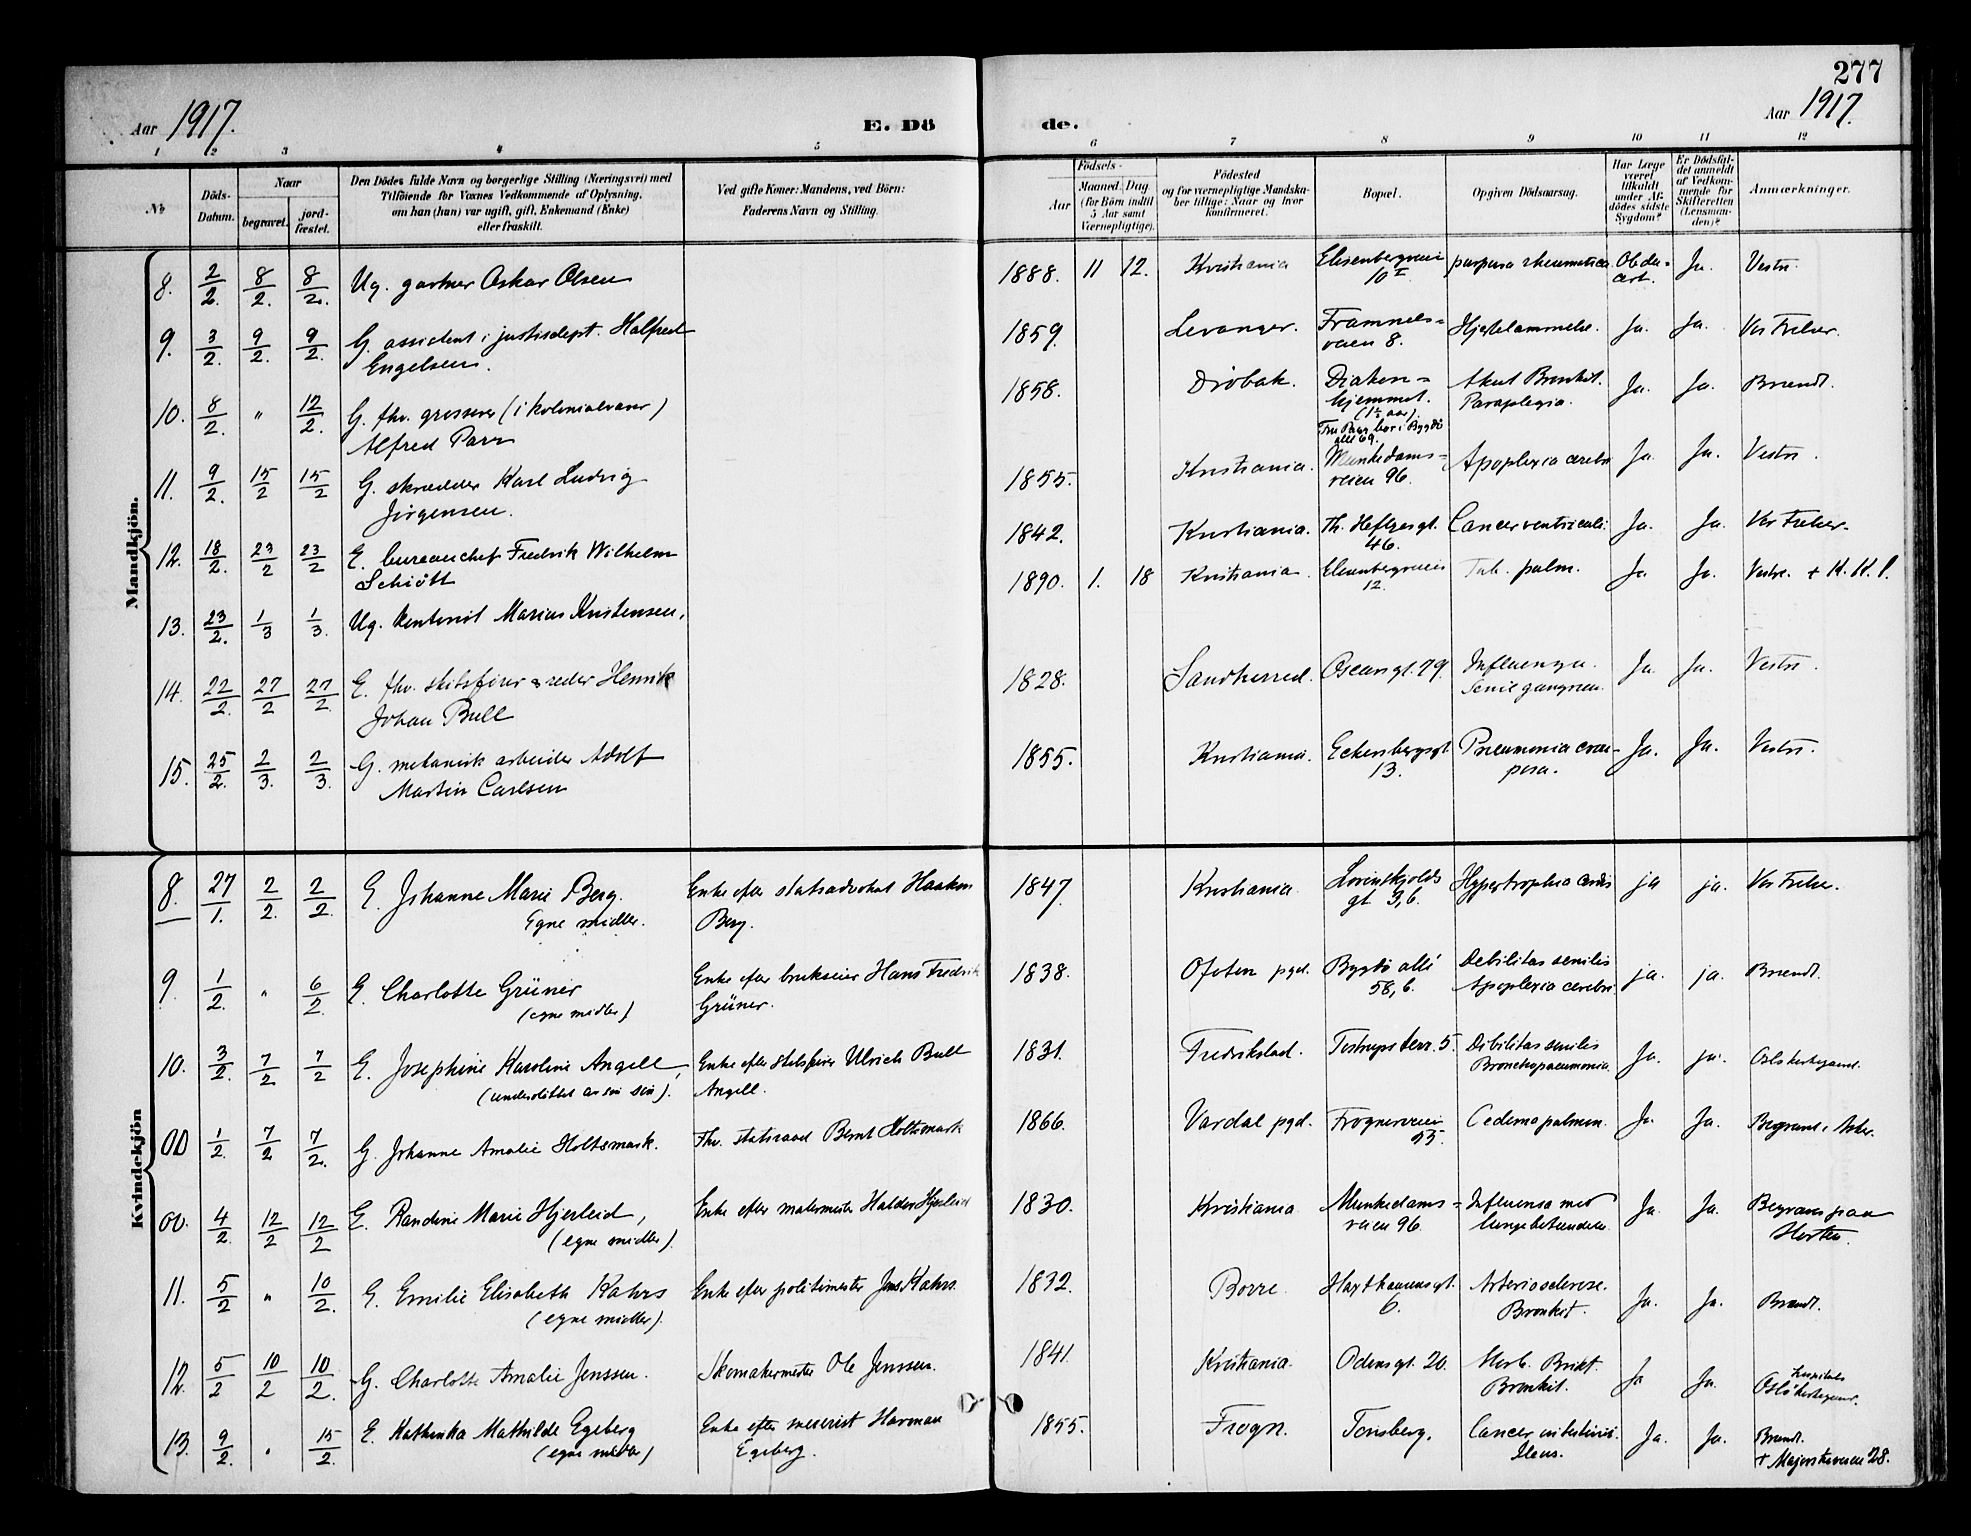 277
Aar 1917.
E. Dö de.
Aar 1917.
1 2 3 4 5 6 7 8 9 10 11 12
No
Döds-Datum.
Naar
begravet.
jord-fæstet.
Den Dödes fulde Navn og borgerlige Stilling (Næringsvei) med
Tilföiende for Voxnes Vedkommende af Oplysning,
om han (hun) var ugift, gift, Enkemand (Enke)
eller fraskilt.
Ved gifte Koner: Mandens, ved Börn:
Faderens Navn og Stilling.
Födsels-
Aar
Maaned. Dag
(for Börn indtil
5 Aar samt
Værnepligtige).
Födested
og for værnepligtige Mandska-
ber tillige: Naar og hvor
konfirmeret.
Bopæl.
Opgiven Dödsaarsag.
Har Læge
været
tilkaldt
under Af-
dödes sidste
Sygdom?
Er Dödsfal-
det anmeldt
af Vedkom-
mende for
Skifteretten
(Lensman-
den)?
Anmærkninger.
Mandkjön.
8. 2/2. 8/2. 8/2. Ug. gartner Oskar Olsen 1888. 11 12. Kristiania Elisenbergveien 10 I purpura rheumatica Obdu=cert. Ja. Vestre.
9. 3/2. 9/2. 9/2. G. assistent i justisdept. Halfred
Engelsen. 1859. Levanger. Framnes=veien 8. Hjertelammelse. Ja. Ja. Vor Frelser.
10. 8/2. " 12/2. G. fhv. grosserer (i kolonialvarer)
Alfred Parr 1858. Dröbak. Diakon=hjemmet. (1½ aar). Fru Parr bor i Bygdö allé 69. Akut Bronkit. Paraplegia. Ja. Ja. Brændt.
11. 9/2. 15/2 15/2 G. skrædder Karl Ludvig
Jörgensen. 1855. Kristiania. Munkedams=veien 96. Apoplexia cerebri Ja. Ja. Vestre.
12. 18/2. 23/2 23/2 E. bureauchef Fredrik Wilhelm
Schiött 1842. Kristiania. Th. Heftyesgt. 46. Cancer ventriculi. Ja. Ja. Vor Frelser.
13. 23/2. 1/3 1/3. Ug. kontorist Marius Kristensen. 1890. 1. 18 Kristiania. Elisenbergveien 12. Tub. pulm. Ja Ja. Vestre. + K. K. l.
14. 22/2. 27/2 27/2 E. fhv. skibsförer & reder Henrik
Johan Bull 1828. Sandherred. Oscarsgt. 79. Influenza. Senil gangren. Ja Ja. Vestre
15. 25/2. 2/3. 2/3. G. mekanisk arbeider Adolf
Martin Carlsen 1855. Kristiania. Eckersbergsgt. 13. Pneumonia crou-posa. Ja. Ja. Vestre.
Kvindekjön
8. 27/1. 2/2. 2/2. E. Johanne Marie Berg.
Egne midler. Enke efter statsadvokat Haakon
Berg. 1847. Kristiania. Lövenskjolds gt 3, b. Hypertrophia cordis ja ja. Vor Frelser.
9. 1/2. " 6/2. E. Charlotte Grüner
(egne midler) Enke efter brukseier Hans Fredrik
Grüner. 1838. Ofoten pgd. Bygdö allé 58, b. Debilitas senilis Apoplexia cerebri. ja. ja. Brændt.
10. 3/2. 7/2 7/2 E. Josephine Karoline Angell,
(understöttet av sin sön). Enke efter skibsförer Ulrich Bull
Angell. 1831. Fredrikstad. Tostrups terr. 5. Debilitas senilis Bronchopneumonia. Ja. ja. Oslo kirkegaard.
00 1/2. 7/2 7/2. G. Johanne Amalie Holtsmark. Fhv. statsraad Bernt Holtsmark 1866. Vardal pgd. Frognerveien 53. Oedema pulmon. Ja. Ja. Begravet i Asker.
00. 4/2. 12/2 12/2 E. Randine Marie Hjerleid,
(egne midler). Enke efter malermester Haldor Hjerleid 1830. Kristiania. Munkedams=veien 96. Influensa med lungebetændelse. Ja. Ja. Begraves paa Horten.
11. 5/2 " 10/2. E. Emilie Elisabeth Kahrs
(egne midler). Enke efter politimester Jens Kahrs. 1832. Borre Haxthausensgt. 6. Arteriosclerose. Bronkit. Ja. Ja. Brændt.
12. 5/2 10/2 10/2. G. Charlotte Amalie Jenssen. Skomakermester Ole Jenssen. 1841. Kristiania. Odensgt. 20. Morb. Brikt. Bronkit. Ja Ja. Oslo hospitals kirkegaard.
13. 9/2. " 15/2. E. Kathinka Mathilde Egeberg
(egne midler) Enke efter meierist Herman
Egeberg. 1855. Frogn. Tönsberg. Cancer intestini. Ileus. Ja. Ja. Brændt.
+ Majorstuveien 28.